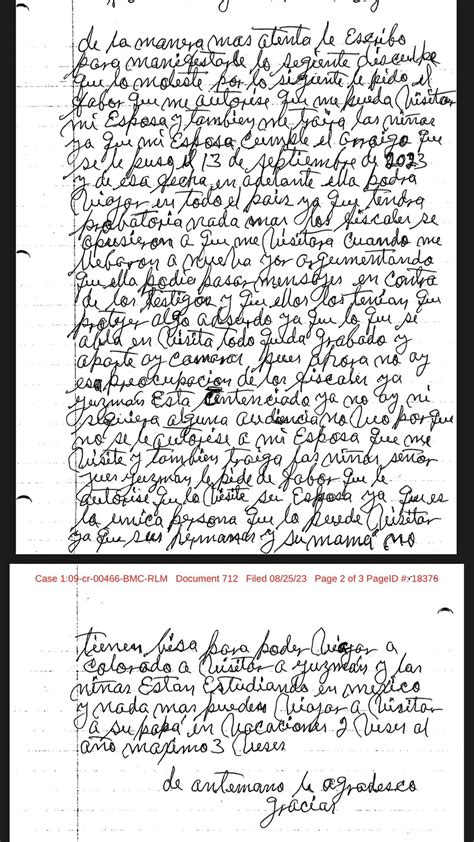 de la manera mas atenta le Escribo
para manifestarle lo segiente disculpe
que lo moleste por lo sigiente le pido el
fabor que me autorise que me pueda Visitar
mi Esposa y tambien me traiga las niñas
ya que mi Esposa Cumple el arraigo que
se le puso el 13 de septiembre de 2023
y de esa fecha en adelante ella podra
Viajar en todo el pais ya que tendra
probatoria nada mas los fiscales se
opusieron a que me Visitara Cuando me
llebaron a nueva yor argumentando
que ella podia pasar mensajes en contra
de los testigos y que ellos los tenian que
proteger algo adsurdo ya que lo que se
abla en Visita todo queda grabado y
aparte ay camaras pues ahora no ay
esa preocupacion de los fiscales ya
guzman Esta Sentenciado ya no ay ni
siquiera alguna audencia no Veo por que
no se le autorise a mi Esposa que me
Visite y tambien traiga las niñas señor
jues guzman le pide de fabor que le
autorise que lo Visite su Esposa ya que es
la unica persona que lo puede Visitar
ya que sus hermanas y su mama no
Case 1:09-cr-00466-BMC-RLM Document 712 Filed 08/25/23 Page 2 of 3 PageID #: 18376
tienen bisa para poder Viajar a
Colorado a Visitar a guzman y las
niñas Estan Estudiando en mexico
y nada mas pueden Viajar a Visitar
a su papá en Vacaciones 2 Veses al
año maximo 3 Veses
de antemano le agradesco
gracias